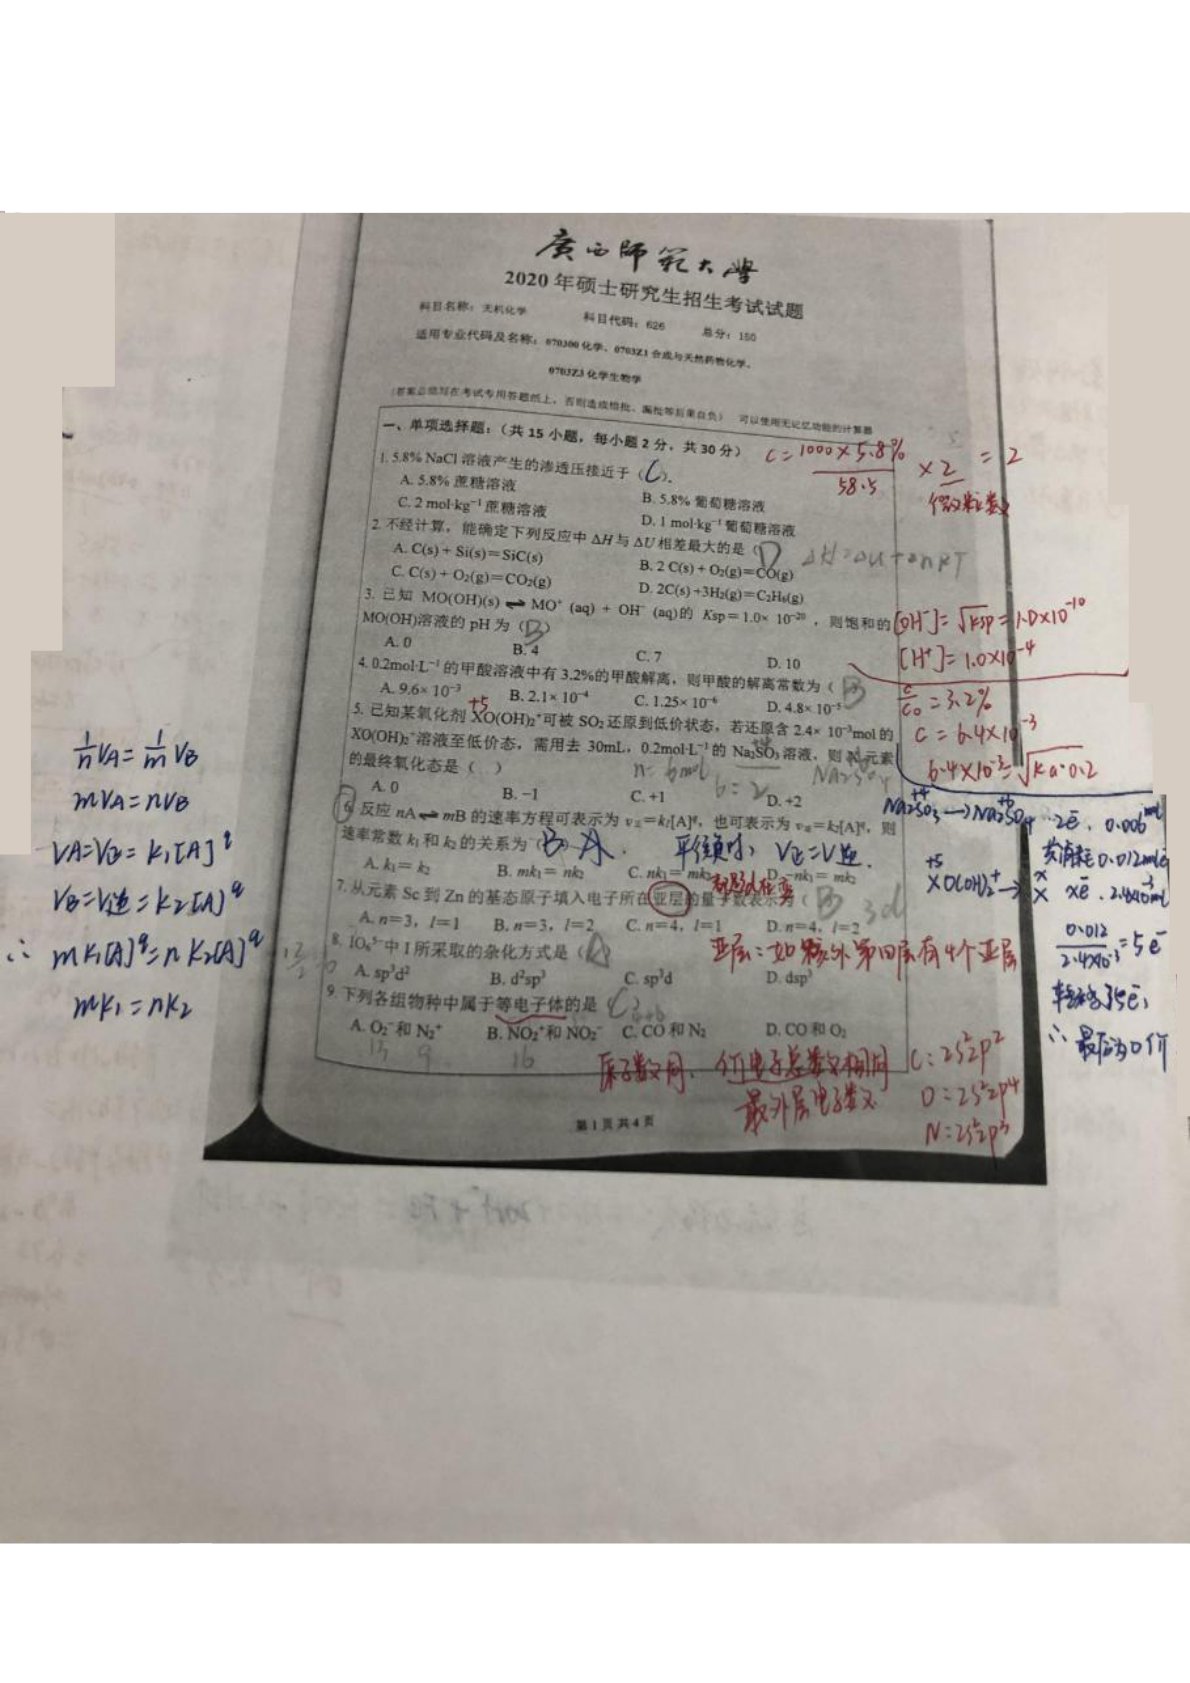 廣西師範大學
2020 年硕士研究生招生考试试题
科目名称：无机化学 科目代码：626 总分：150
适用专业代码及名称：070300 化学、0703Z1 合成与天然药物化学、
0703Z3 化学生物学
（答案必须写在考试专用答题纸上，否则造成错批、漏批等后果自负） 可以使用无记忆功能的计算器
一、单项选择题：（共 15 小题，每小题 2 分，共 30 分）
C = 1000×5.8% / 58.5 ×2 = 2
微粒数
1. 5.8% NaCl 溶液产生的渗透压接近于（C）.
A. 5.8% 蔗糖溶液 B. 5.8% 葡萄糖溶液
C. 2 mol·kg⁻¹ 蔗糖溶液 D. 1 mol·kg⁻¹ 葡萄糖溶液
2. 不经计算，能确定下列反应中 ΔH 与 ΔU 相差最大的是（D
ΔH=ΔU+ΔnRT
A. C(s) + Si(s)=SiC(s) B. 2 C(s) + O₂(g)=CO(g)
C. C(s) + O₂(g)=CO₂(g) D. 2C(s) +3H₂(g)=C₂H₆(g)
3. 已知 MO(OH)(s) ⇌ MO⁺ (aq) + OH⁻ (aq)的 Ksp = 1.0× 10⁻²⁰ ，则饱和的
MO(OH)溶液的 pH 为（B）
A. 0 B. 4 C. 7 D. 10
[OH⁻]= √Ksp = 1.0×10⁻¹⁰
[H⁺]= 1.0×10⁻⁴
4. 0.2mol·L⁻¹ 的甲酸溶液中有 3.2%的甲酸解离，则甲酸的解离常数为（ B
A. 9.6× 10⁻³ B. 2.1× 10⁻⁴ C. 1.25× 10⁻⁶ D. 4.8× 10⁻⁵
c/c₀ = 3.2%
C = 6.4×10⁻³
6.4×10⁻³=√Ka·0.2
+5
5. 已知某氧化剂 XO(OH)₂⁺可被 SO₂ 还原到低价状态，若还原含 2.4× 10⁻³mol 的
XO(OH)₂⁺溶液至低价态，需用去 30mL，0.2mol·L⁻¹ 的 Na₂SO₃ 溶液，则 X 元素
的最终氧化态是（ ）
n= 6mol
Na₂SO₄
A. 0 B. −1 C. +1 D. +2
+4 +6
Na₂SO₃ → Na₂SO₄ 2e⁻. 0.006mol
共消耗0.012mole⁻
+5 x
XO(OH)₂⁺ → X xe⁻. 2.4×10⁻³mol
0.012 / 2.4×10⁻³ = 5e⁻
转移5e⁻,
∴ 最后为0价
6. 反应 nA⇌mB 的速率方程可表示为 v正=k₁[A]^q，也可表示为 v逆=k₂[A]^q，则
速率常数 k₁ 和 k₂ 的关系为（B A. 平衡时，V正=V逆.
A. k₁ = k₂ B. mk₁ = nk₂ C. nk₁ = mk₂ D. −nk₁ = mk₂
1/n VA = 1/m VB
mVA = nVB
VA=V正= k₁[A]^q
VB=V逆=k₂[A]^q
∴ mk₁[A]^q=nk₂[A]^q
mk₁=nk₂
7. 从元素 Sc 到 Zn 的基态原子填入电子所在亚层的量子数表示为（ B 3d
A. n=3，l=1 B. n=3，l=2 C. n=4，l=1 D. n=4，l=2
亚层：如 核外 第四层有4个亚层
8. IO₆⁵⁻中 I 所采取的杂化方式是（A
A. sp³d² B. d²sp³ C. sp³d D. dsp³
9. 下列各组物种中属于等电子体的是 C
A. O₂⁻和 N₂⁺ B. NO₂⁺和 NO₂⁻ C. CO 和 N₂ D. CO 和 O₂
13 9 16
原子数同、价电子总数相同
最外层电子数
C: 2s²2p²
O: 2s²2p⁴
N: 2s²2p³
第 1 页 共 4 页